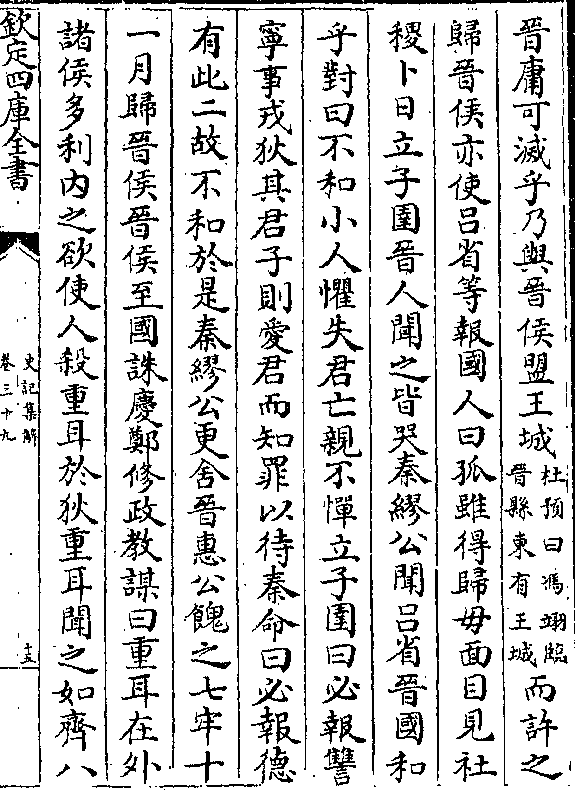 晉庸可滅乎乃與晉侯盟王城杜預曰馮翊臨晉縣東有王城而許之
歸晉侯亦使呂省等報國人曰孤雖得歸毋面目見社
稷卜日立子圉晉人聞之皆哭秦繆公聞呂省晉國和
乎對曰不和小人懼失君亡親不憚立子圉曰必報讐
寧事戎狄其君子則愛君而知罪以待秦命曰必報德
有此二故不和於是秦繆公更舍晉惠公餽之七牢十
一月歸晉侯晉侯至國誅慶鄭修政教謀曰重耳在外
諸侯多利内之欲使人殺重耳於狄重耳聞之如齊八
欽定四庫全書
史記集解
卷三十九
十五